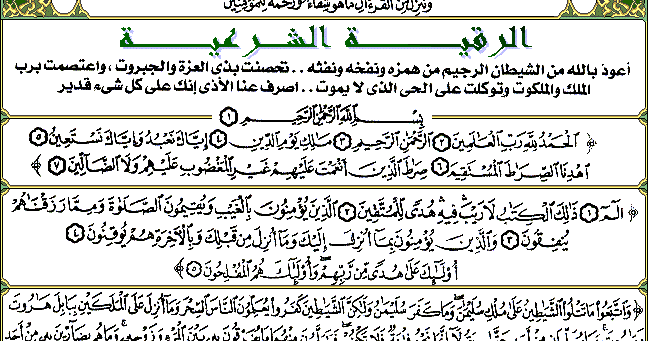 وننزل من القرءان ما هو شفاء ورحمة للمؤمنين
الرقيــة الشرعيــة
أعوذ بالله من الشيطان الرجيم من همزه ونفخه ونفثه . . تحصنت بذى العزة والجبروت ، واعتصمت برب
الملك والملكوت وتوكلت على الحى الذى لا يموت . . اصرف عنا الأذى إنك على كل شىء قدير
بِسْمِ اللَّهِ الرَّحْمَٰنِ الرَّحِيمِ ١
﴿ الْحَمْدُ لِلَّهِ رَبِّ الْعَالَمِينَ ٢ الرَّحْمَٰنِ الرَّحِيمِ ٣ مَالِكِ يَوْمِ الدِّينِ ٤ إِيَّاكَ نَعْبُدُ وَإِيَّاكَ نَسْتَعِينُ ٥
اهْدِنَا الصِّرَاطَ الْمُسْتَقِيمَ ٦ صِرَاطَ الَّذِينَ أَنْعَمْتَ عَلَيْهِمْ غَيْرِ الْمَغْضُوبِ عَلَيْهِمْ وَلَا الضَّالِّينَ ٧ ﴾
﴿ الم ١ ذَٰلِكَ الْكِتَابُ لَا رَيْبَ فِيهِ هُدًى لِلْمُتَّقِينَ ٢ الَّذِينَ يُؤْمِنُونَ بِالْغَيْبِ وَيُقِيمُونَ الصَّلَاةَ وَمِمَّا رَزَقْنَاهُمْ
يُنْفِقُونَ ٣ وَالَّذِينَ يُؤْمِنُونَ بِمَا أُنْزِلَ إِلَيْكَ وَمَا أُنْزِلَ مِنْ قَبْلِكَ وَبِالْآخِرَةِ هُمْ يُوقِنُونَ ٤
أُولَٰئِكَ عَلَىٰ هُدًى مِنْ رَبِّهِمْ وَأُولَٰئِكَ هُمُ الْمُفْلِحُونَ ٥ ﴾
﴿ وَاتَّبَعُوا مَا تَتْلُو الشَّيَاطِينُ عَلَىٰ مُلْكِ سُلَيْمَانَ وَمَا كَفَرَ سُلَيْمَانُ وَلَٰكِنَّ الشَّيَاطِينَ كَفَرُوا يُعَلِّمُونَ النَّاسَ السِّحْرَ وَمَا أُنْزِلَ عَلَى الْمَلَكَيْنِ بِبَابِلَ هَارُوتَ